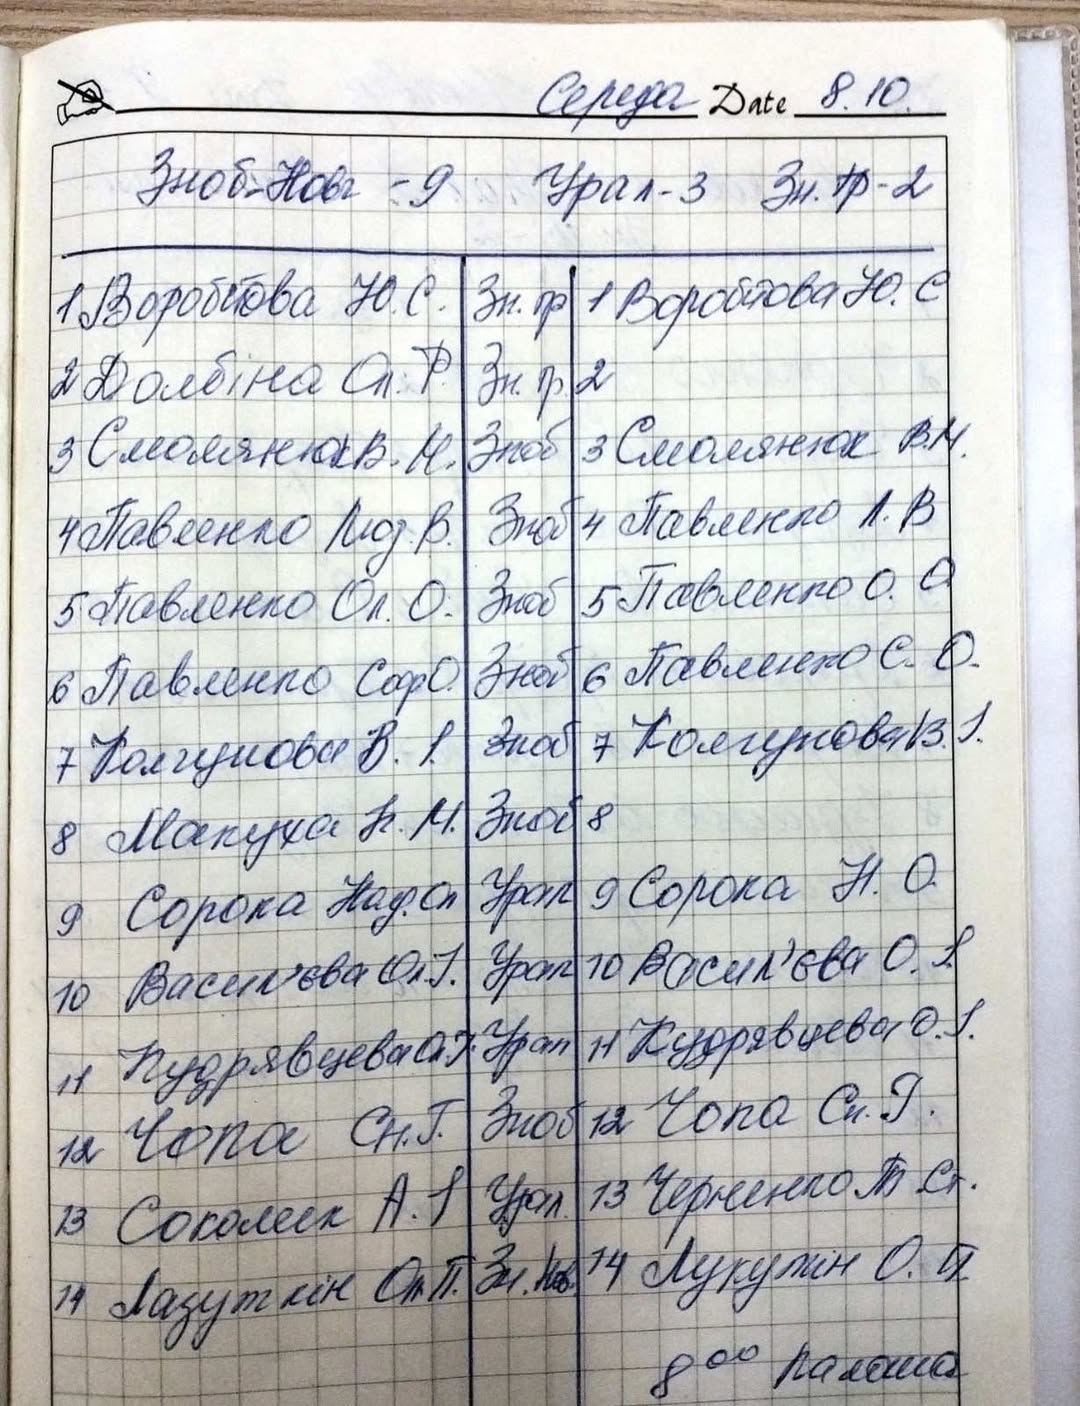 Середа Date 8.10.
Зноб-Новг - 9 Урал-3 Зн. тр-2
1 Воробйова Ю. С. Зн. тр 1 Воробйова Ю. С
2 Долбіна Ол. Р. Зн. тр. 2
3 Смолянюк В. М. Зноб 3 Смолянюк В.М.
4 Павленко Люд. В. Зноб 4 Павленко Л. В
5 Павленко Ол. О. Зноб 5 Павленко О. О
6 Павленко Соф О. Зноб 6 Павленко С. О.
7 Колгунова В. І. Зноб 7 Колгунова В. І.
8 Макуха Н. М. Зноб 8
9 Сорока Над. Ол Урал 9 Сорока Н. О.
10 Васил'єва Ол. І. Урал 10 Васил'єва О. І.
11 Кудрявцева Ол. І. Урал 11 Кудрявцева О. І.
12 Чопа Сн. Г. Зноб 12 Чопа Сн. Г.
13 Соколик А. І Урал. 13 Черненко Т. Ст.
14 Лазуткін Ол П. Зн. Нов. 14 Лукуткін О. П.
8 00